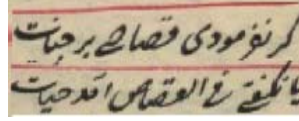 گر نفرمودی قصاصی بر جنات
یا نگفتی فی القصاص آمد حیات